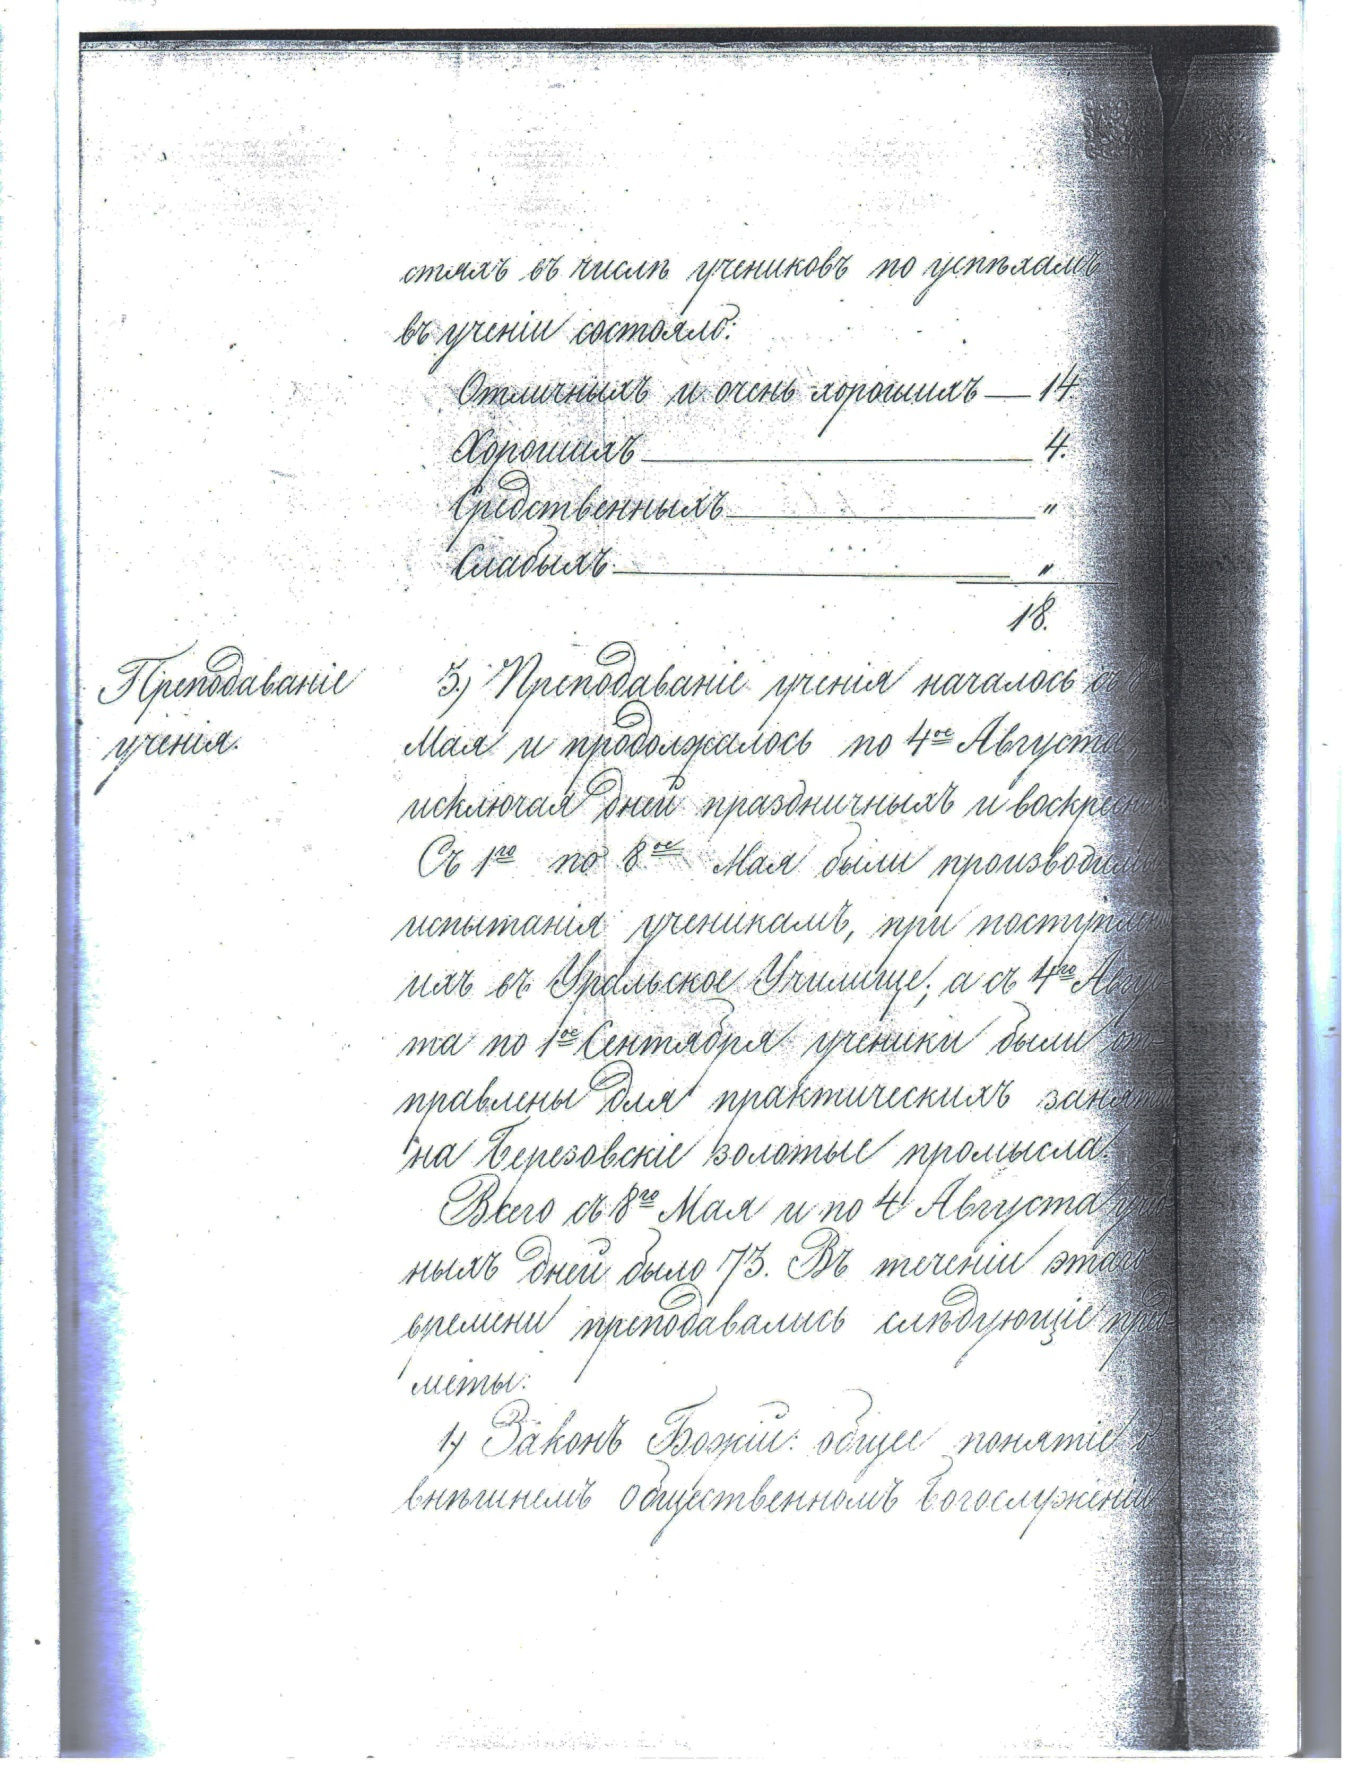 стяхъ въ числѣ учениковъ по успѣхамъ
въ ученіи состояло:
Отличныхъ и очень хорошихъ — 14.
Хорошихъ 4.
Средственныхъ "
Слабыхъ "
18.
Преподаваніе
ученія.
3.) Преподаваніе ученія началось съ
Мая и продолжалось по 4ое Августа,
исключая дней праздничныхъ и
Съ 1го по 8ое Мая были
испытанія ученикамъ, при
ихъ въ Уральское Училище; а съ 4го Авгус-
та по 1ое Сентября ученики были от-
правлены для практическихъ
на Березовскіе золотые промысла.
Всего съ 8го Мая и по 4 Августа учеб-
ныхъ дней было 73. Въ теченіи этаго
времени преподавались слѣдующіе пред-
меты:
1.) Законъ Божій: общее понятіе о
внѣшнемъ общественномъ Богослуженіи